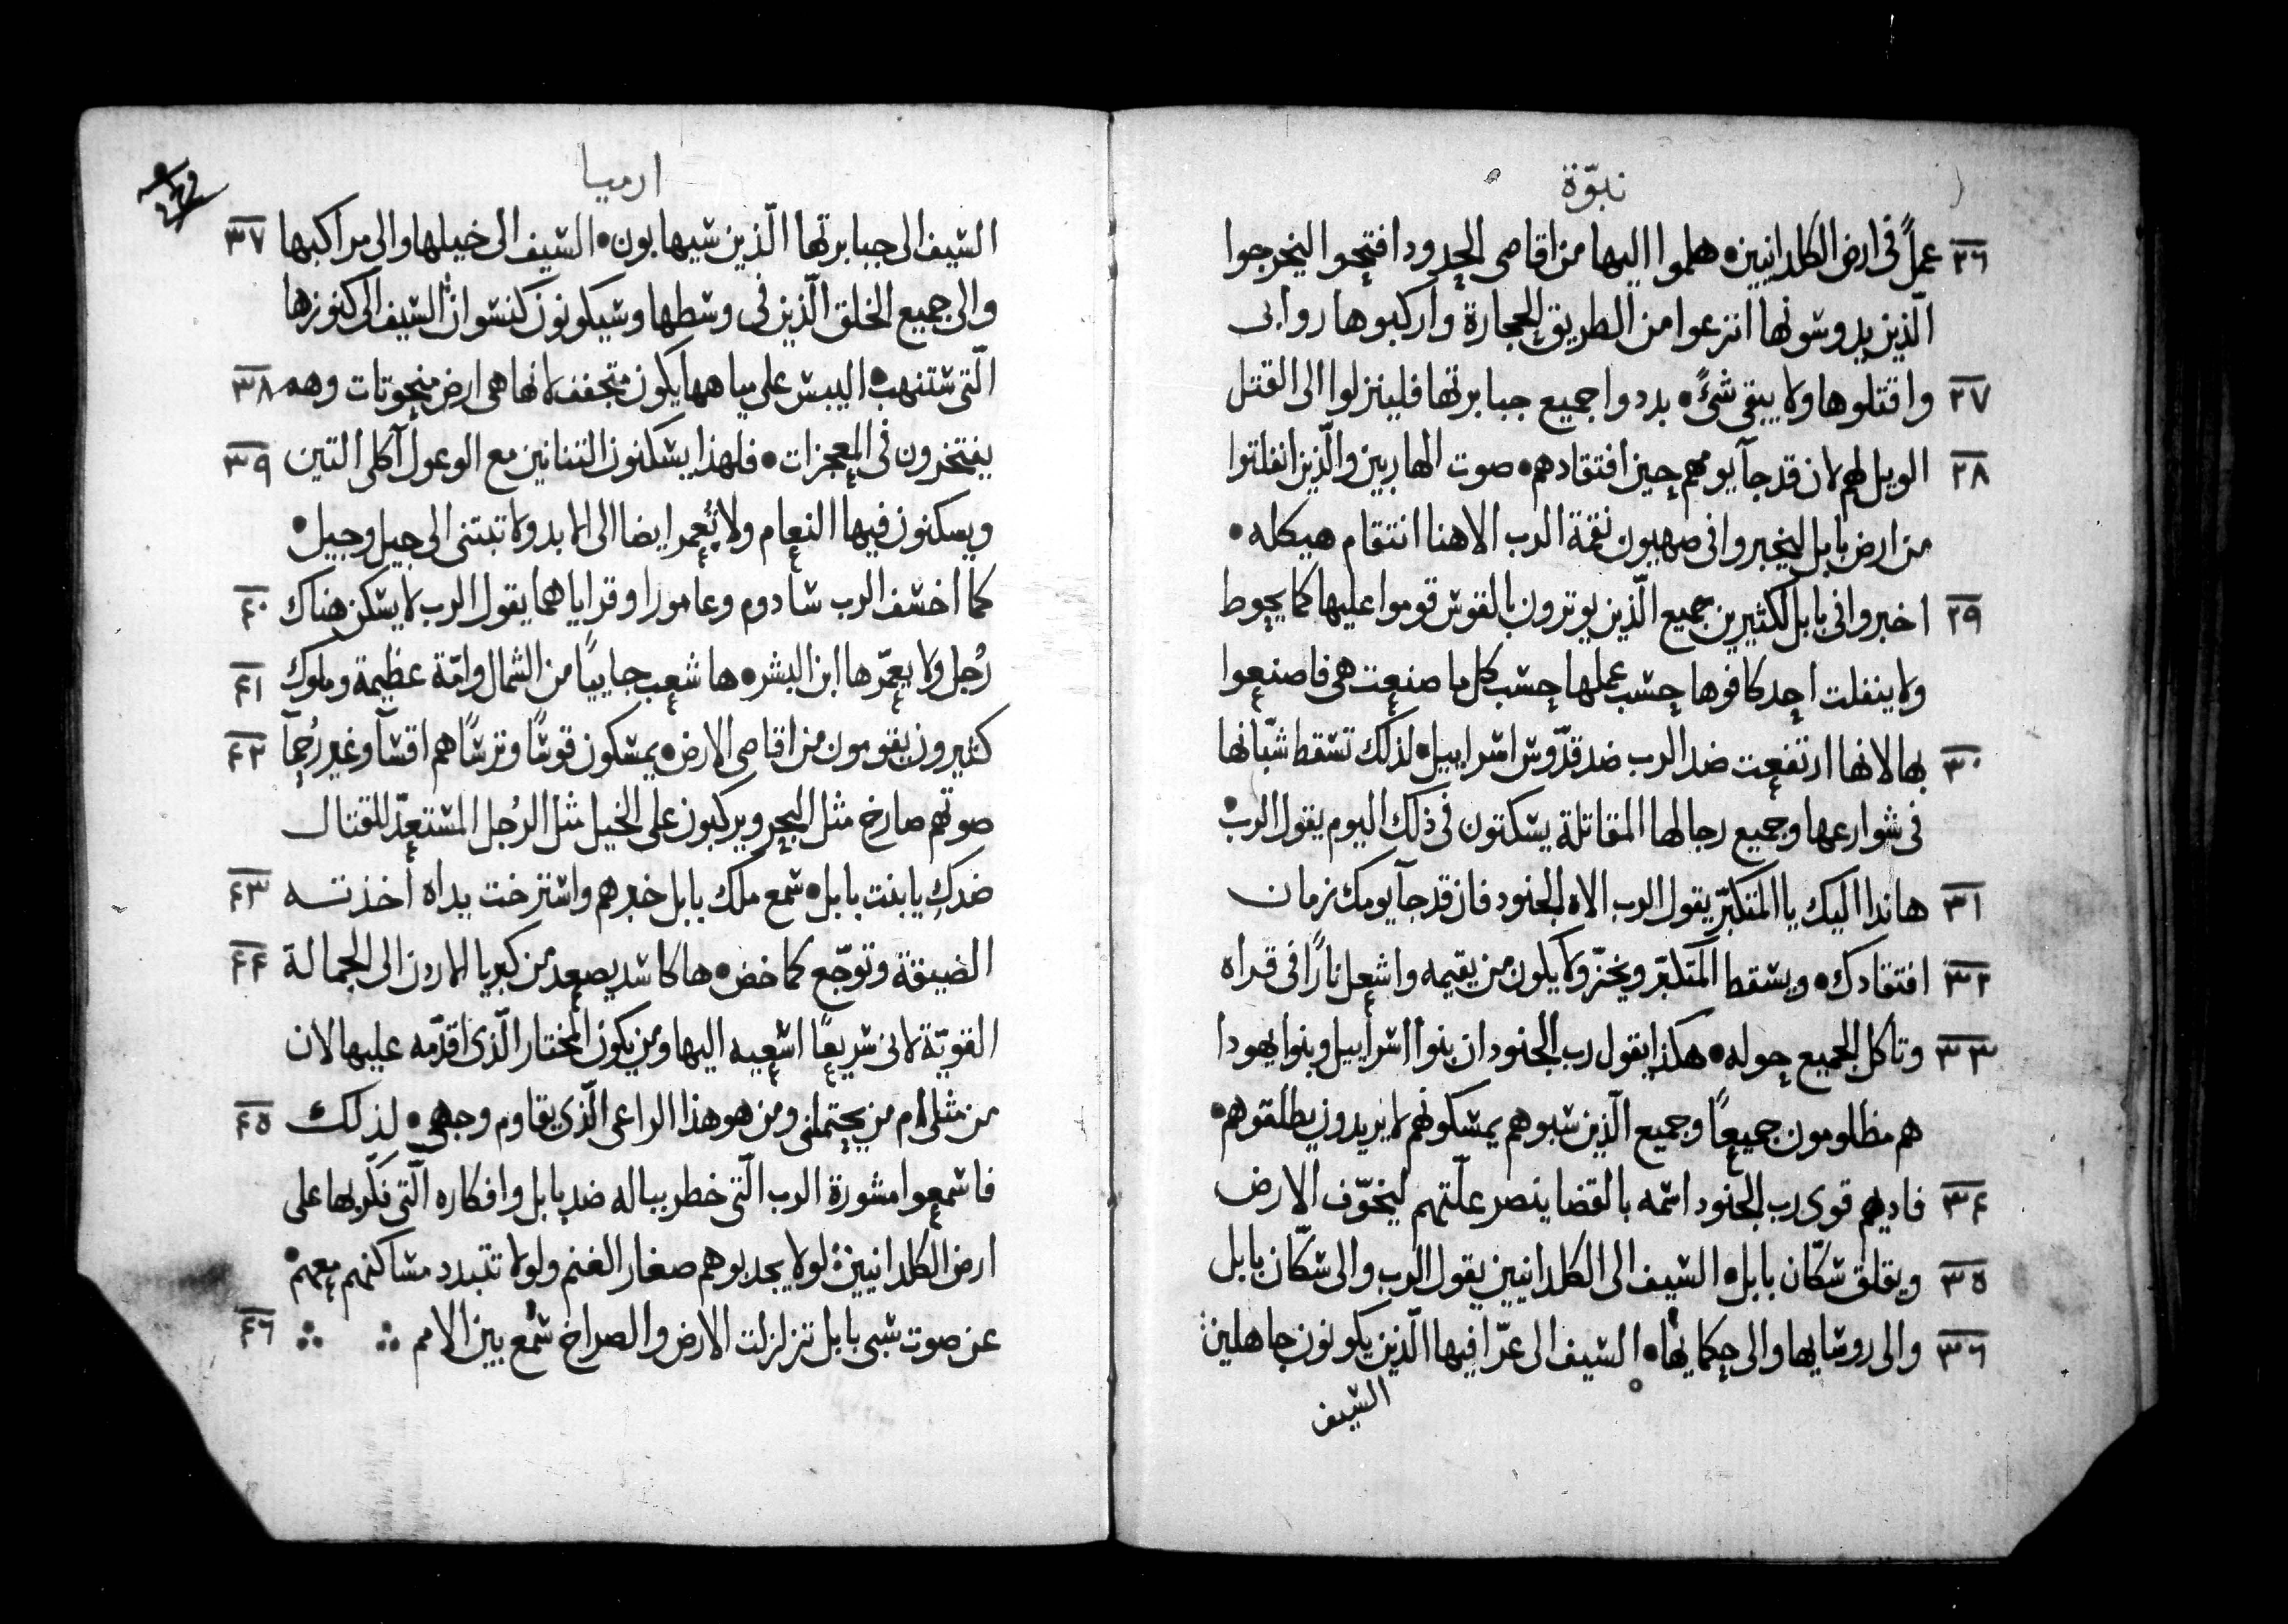 نبوّة
٢٦ عملًا في ارض الكلدانيين • هلموا اليها من اقاصى الحدود افتحوا ليخرجوا
الّذين يدوسونها انتزعوا من الطريق الحجارة واركبوها روابى
٢٧ واقتلوها ولا يبقى شئً • بددوا جميع جبابرتها فلينزلوا الى القتل
٢٨ الويل لهم لان قد جآ يومهم حين افتقادهم • صوت الهاربين والّذين انفلتوا
من ارض بابل ليخبروا فى صهيون نقمة الرب الاهنا انتقام هيكله •
٢٩ اخبروا فى بابل لكثيرين جميع الّذين يوترون بالقوس قوموا عليها كما يحوط
ولا ينفلت احد كافوها حسب عملها حسب كل ما صنعت هى فاصنعوا
٣٠ بها لانها ارتفعت ضد الرب ضد قدّوس اسراييل • لذلك تسقط شبّانها
فى شوارعها وجميع رجالها المقاتلة يسكتون فى ذلك اليوم يقول الرب •
٣١ هانذا اليك يا المتكبّر يقول الرب الاه الجنود فان قد جآ يومك زمان
٣٢ افتقادك • ويسقط المتكبّر ويخرّ ولا يكون من يقيمه واشعل نارًا فى قراه
٣٣ وتاكل الجميع حوله • هكذا يقول رب الجنود ان بنوا اسراييل وبنوا يهودا
هم مظلومون جميعًا وجميع الّذين سبوهم يمسكونهم لا يريدون يطلقوهم •
٣٤ فاديهم قوى رب الجنود اسمه بالقضا ينصر علّتهم ليخوّف الارض
٣٥ ويقلق سكّان بابل • السيف الى الكلدانيين يقول الرب والى سكّان بابل
٣٦ والى روسايها والى حكمايها • السيف الى عرّافيها الّذين يكونون جاهلين
السيف
ارميا
السيف الى جبابرتها الّذين سيهابون • السيف الى خيلها والى مراكبها ٣٧
والى جميع الخلق الّذين فى وسطها وسيكونون كنسوان السيف الى كنوزها
الّتى ستنهب • اليبس على مياهها يكون متجفف لانها هى ارض منحوتات وهم ٣٨
يفتخرون فى المعجزات • فلهذا يسكنون التنانين مع الوعول آكلى التين ٣٩
ويسكنون فيها النعام ولا تُعمر ايضا الى الابد ولا تبتنى الى جيل وجيل •
كما اخسف الرب سادوم وعامورا وقراياهما يقول الرب لا يسكن هناك ٤٠
رُجل ولا يعمّرها ابن البشر • ها شعب جاييًا من الشمال وامّة عظيمة وملوك ٤١
كثيرون يقومون من اقاصى الارض • يمسكون قوسًا وترسًا هم اقسآ وغير رُحمآ ٤٢
صوتهم صارخ مثل البحر ويركبون على الخيل مثل الرُجل المستعدّ للقتال
ضدكِ يا بنت بابل • سمع ملك بابل خبرهم واسترخت يداه أخذته ٤٣
الضيقة وتوجّع كماخض • ها كاسد يصعد من كبريا الاردن الى الجمالة ٤٤
القويّة لانى سريعًا اسعيه اليها ومن يكون المختار الّذى اقدّمه عليها لان
من مثلى ام من يحتملنى ومن هو هذا الراعى الّذى يقاوم وجهى • لذلك ٤٥
فاسمعوا مشورة الرب الّتى خطر بباله ضد بابل وافكاره الّتى فكّر بها على
ارض الكلدانيين لولا يجدبوهم صغار الغنم ولولا تتبدد مساكنهم معهم •
عن صوت سبى بابل تزلزلت الارض والصراخ سُمع بين الامم ٤٦